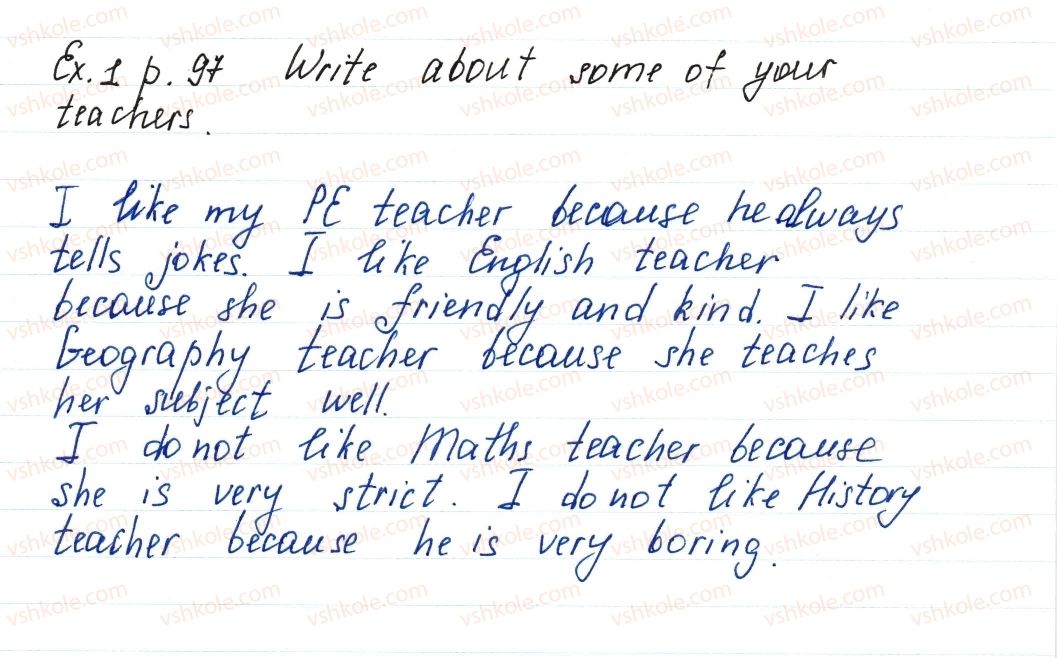 Ex. 1 p. 97 Write about some of your
teachers.
I like my PE teacher because he always
tells jokes. I like English teacher
because she is friendly and kind. I like
Geography teacher because she teaches
her subject well.
I do not like Maths teacher because
she is very strict. I do not like History
teacher because he is very boring.
vshkole.com